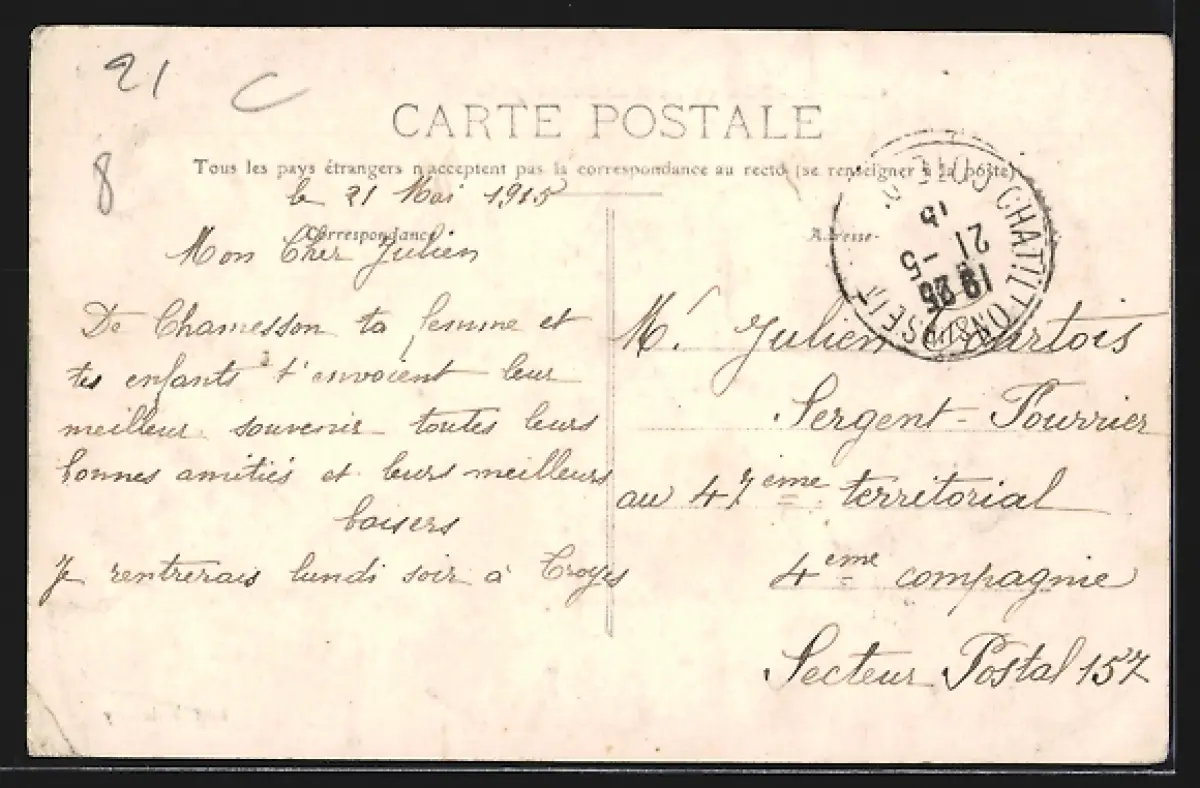 21
C
8
CARTE POSTALE
Tous les pays étrangers n'acceptent pas la correspondance au recto (se renseigner à la poste)
le 21 Mai 1915
Correspondance
Mon Cher Julien
De Chamesson ta femme et
tes enfants t'envoient leur
meilleur souvenir toutes leurs
bonnes amitiés et leurs meilleurs
baisers
Je rentrerais lundi soir à Troyes
Adresse
CHATILLON S SEINE
21 -5
15
Mr. Julien Courtois
Sergent-Fourrier
au 47ème territorial
4ème compagnie
Secteur Postal 157